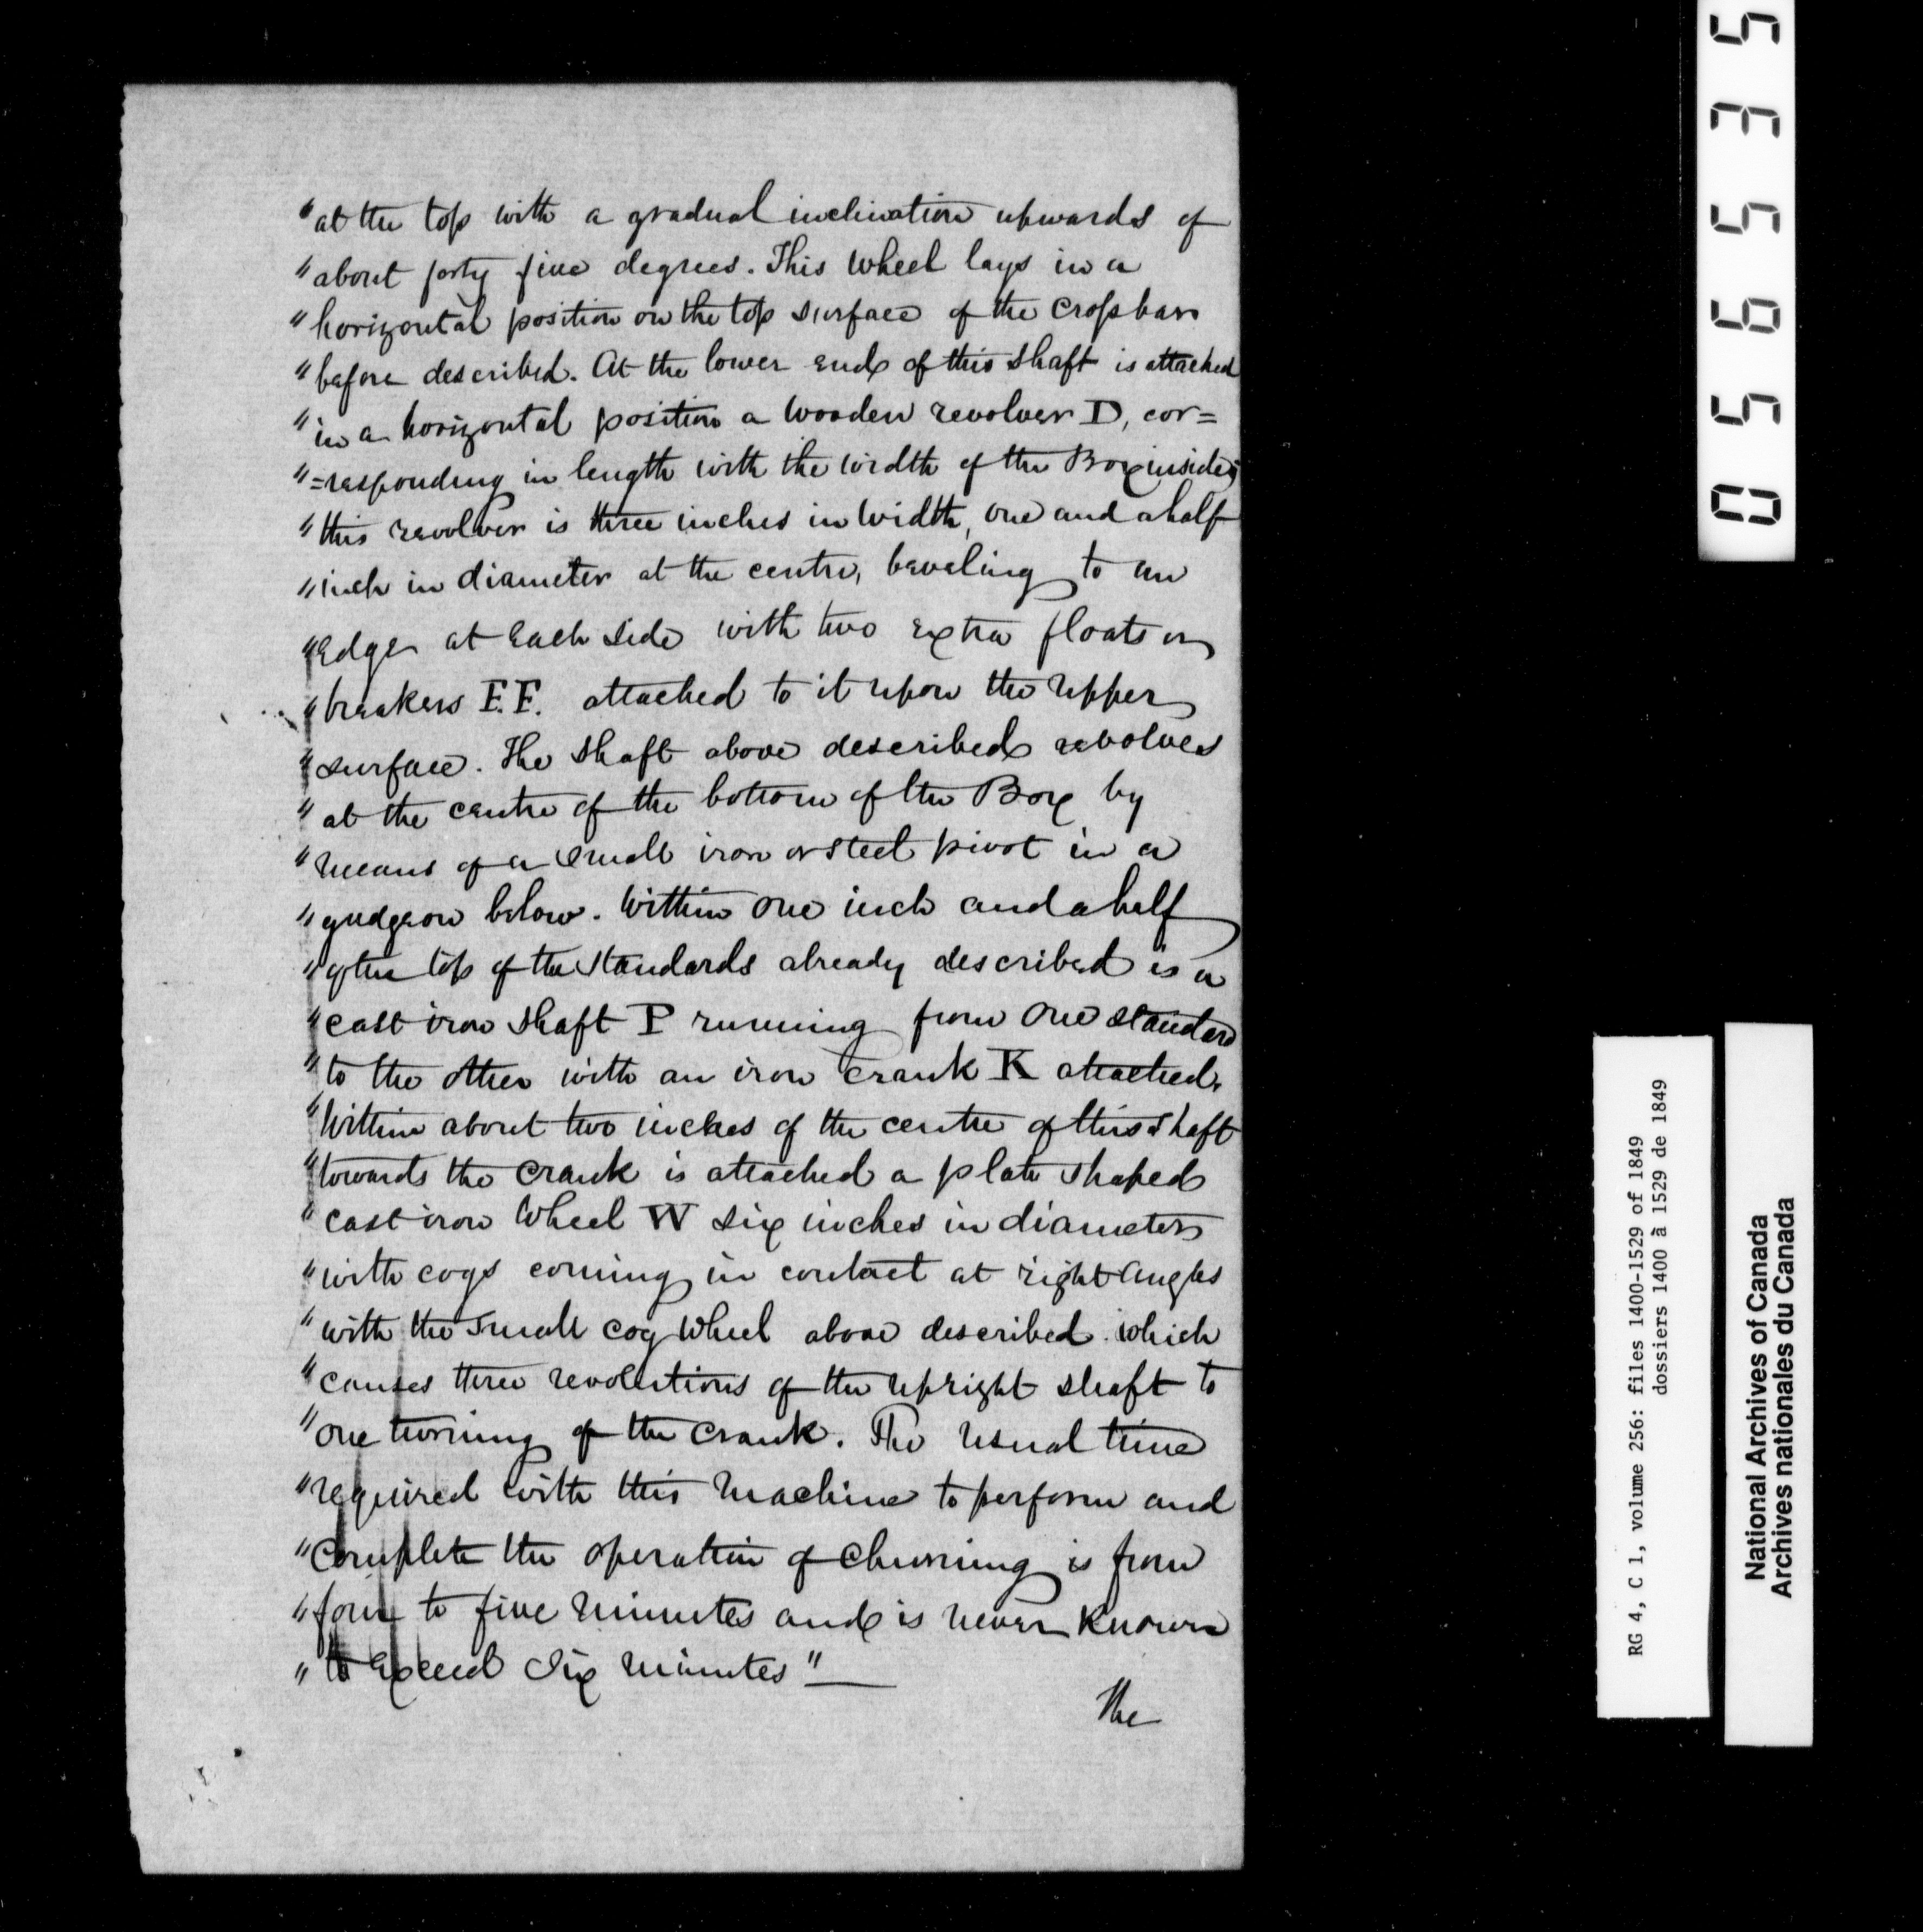 "at the top with a gradual inclination upwards of
"about forty five degrees. This Wheel lays in a
"horizontal position on the top surface of the Cross bar
"before described. At the lower end of this shaft is attached
"in a horizontal position a Wooden revolver D, cor=
"=responding in length with the width of the Box inside;
"this revolver is three inches in Width, one and a half
"inch in diameter at the centre, beveling to an
"edge at each side with two extra floats or
"breakers F.F. attached to it upon the upper
"surface. The Shaft above described revolves
"at the centre of the bottom of the Box by
"means of a small iron or steel pivot in a
"gudgeon below. Within one inch and a half
"of the top of the Standards already described is a
"cast iron Shaft P running from one standard
"to the other with an iron crank K attached.
"Within about two inches of the centre of this shaft
"towards the crank is attached a plate shaped
"cast iron Wheel W six inches in diameter
"with cogs coming in contact at right angles
"with the small cog Wheel above described which
"causes three revolutions of the upright shaft to
"one turning of the Crank. The usual time
"required with this Machine to perform and
"complete the operation of Churning is from
"four to five minutes and is never Known
"to exceed Six minutes"
The
056535
RG 4, C 1, volume 256: files 1400-1529 of 1849
dossiers 1400 à 1529 de 1849
National Archives of Canada
Archives nationales du Canada